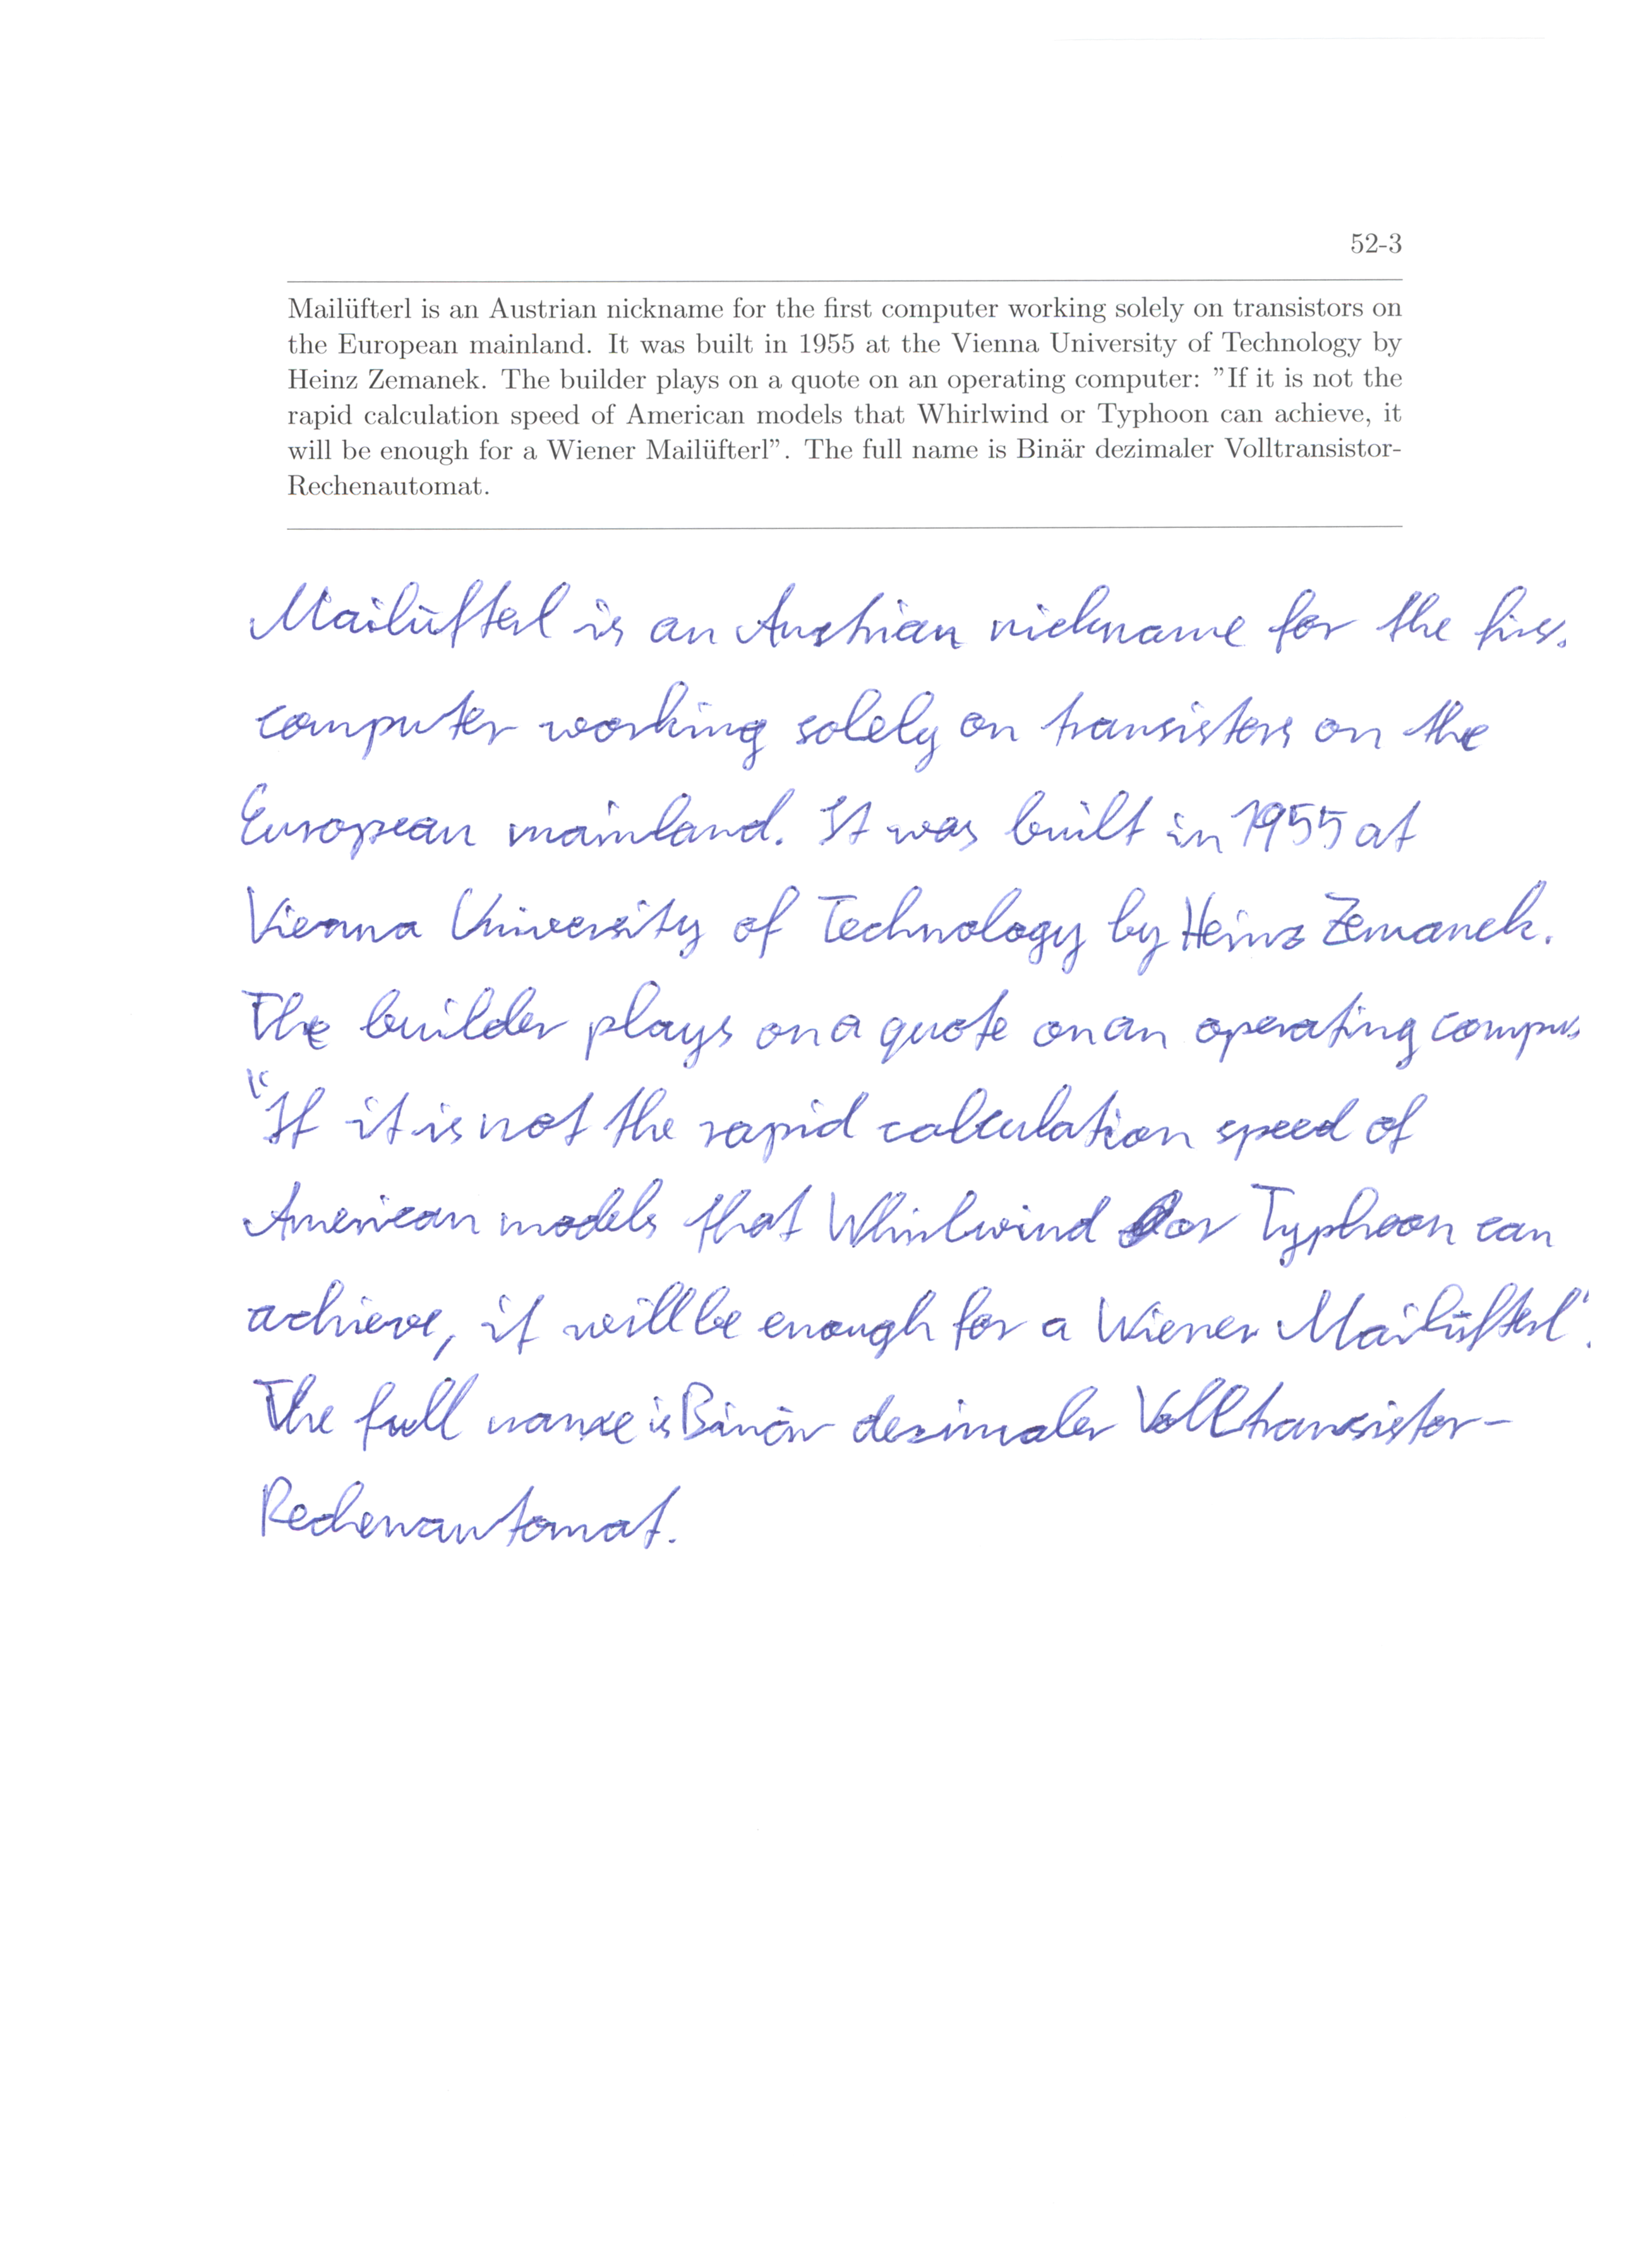 52-3
Mailüfterl is an Austrian nickname for the first computer working solely on transistors on
the European mainland. It was built in 1955 at the Vienna University of Technology by
Heinz Zemanek. The builder plays on a quote on an operating computer: ”If it is not the
rapid calculation speed of American models that Whirlwind or Typhoon can achieve, it
will be enough for a Wiener Mailüfterl”. The full name is Binär dezimaler Volltransistor-
Rechenautomat.
Mailüfterl is an Austrian nickname for the
computer working solely on transistors on the
European mainland. It was built in 1955 at
Vienna University of Technology by Heinz Zemanek.
The builder plays on a quote on an operating
"If it is not the rapid calculation speed of
American models that Whirlwind or Typhoon can
achieve, it will be enough for a Wiener Mailüfterl".
The full name is Binär dezimaler Volltransistor-
Rechenautomat.